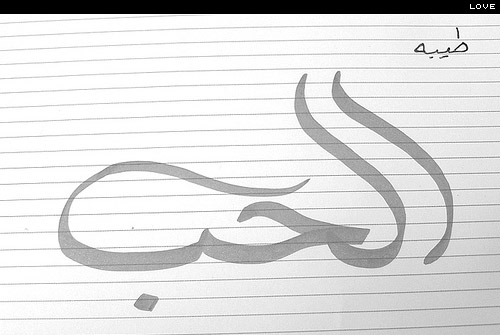 LOVE
طيبه
الحب